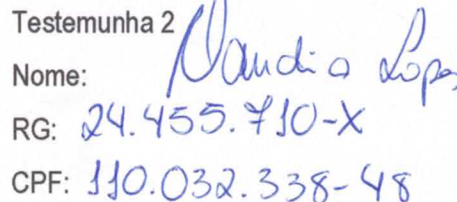 Testemunha 2
Nome: Claudia Lopes
RG: 24.455.710-X
CPF: 110.032.338-48